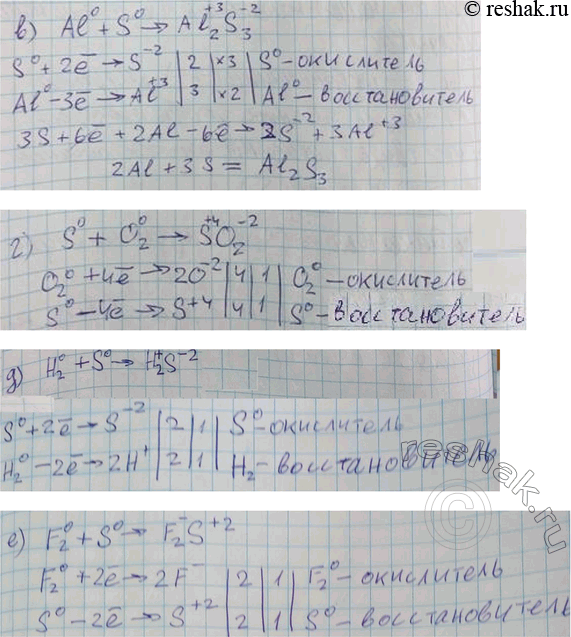 © reshak.ru
в) Al⁰ + S⁰ → Al₂⁺³S₃⁻²
S⁰ + 2ē → S⁻² | 2 | ×3 | S⁰ - окислитель
Al⁰ - 3ē → Al⁺³ | 3 | ×2 | Al⁰ - восстановитель
3S + 6ē + 2Al - 6ē → 3S⁻² + 3Al⁺³
2Al + 3S = Al₂S₃
г) S⁰ + O₂⁰ → S⁺⁴O₂⁻²
O₂⁰ + 4ē → 2O⁻² | 4 | 1 | O₂⁰ - окислитель
S⁰ - 4ē → S⁺⁴ | 4 | 1 | S⁰ - восстановитель
д) H₂⁰ + S⁰ → H₂⁺S⁻²
S⁰ + 2ē → S⁻² | 2 | 1 | S⁰ - окислитель
H₂⁰ - 2ē → 2H⁺ | 2 | 1 | H₂ - восстановитель
reshak.ru
е) F₂⁰ + S⁰ → F₂⁻S⁺²
F₂⁰ + 2ē → 2F⁻ | 2 | 1 | F₂⁰ - окислитель
S⁰ - 2ē → S⁺² | 2 | 1 | S⁰ - восстановитель